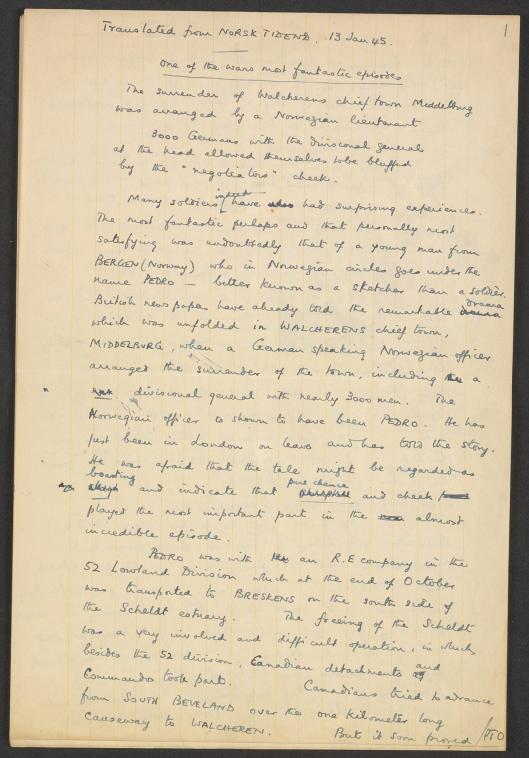 1
Translated from NORSK TIDEND, 13 Jan 45.
One of the wars most fantastic episodes
The surrender of Walcherens chief town Middelburg
was arranged by a Norwegian lieutenant
3000 Germans with the divisional general
at the head allowed themselves to be bluffed
by the "negotiators" cheek.
Many soldiers indeed have had surprising experiences.
The most fantastic perhaps and that personally most
satisfying was undoubtedly that of a young man from
BERGEN (Norway) who in Norwegian circles goes under the
name PEDRO – better known as a sketcher than a soldier.
British newspapers have already told the remarkable drama
which was unfolded in WALCHERENS chief town,
MIDDELBURG, when a German speaking Norwegian officer
arranged the surrender of the town, including a
divisional general with nearly 3000 men. The
Norwegian officer is shown to have been PEDRO. He has
just been in London on leave and has told the story.
He was afraid that the tale might be regarded as
boasting and indicate that pure chance and cheek
played the most important part in the almost
incredible episode.
PEDRO was with an R.E company in the
52 Lowland Division which at the end of October
was transported to BRESKENS on the south side of
the Scheldt estuary. The freeing of the Scheldt
was a very involved and difficult operation, in which
besides the 52 division, Canadian detachments and
Commandos took part. Canadians tried to advance
from SOUTH BEVELAND over the one kilometer long
Causeway to WALCHEREN. But it soon proved
/PTO